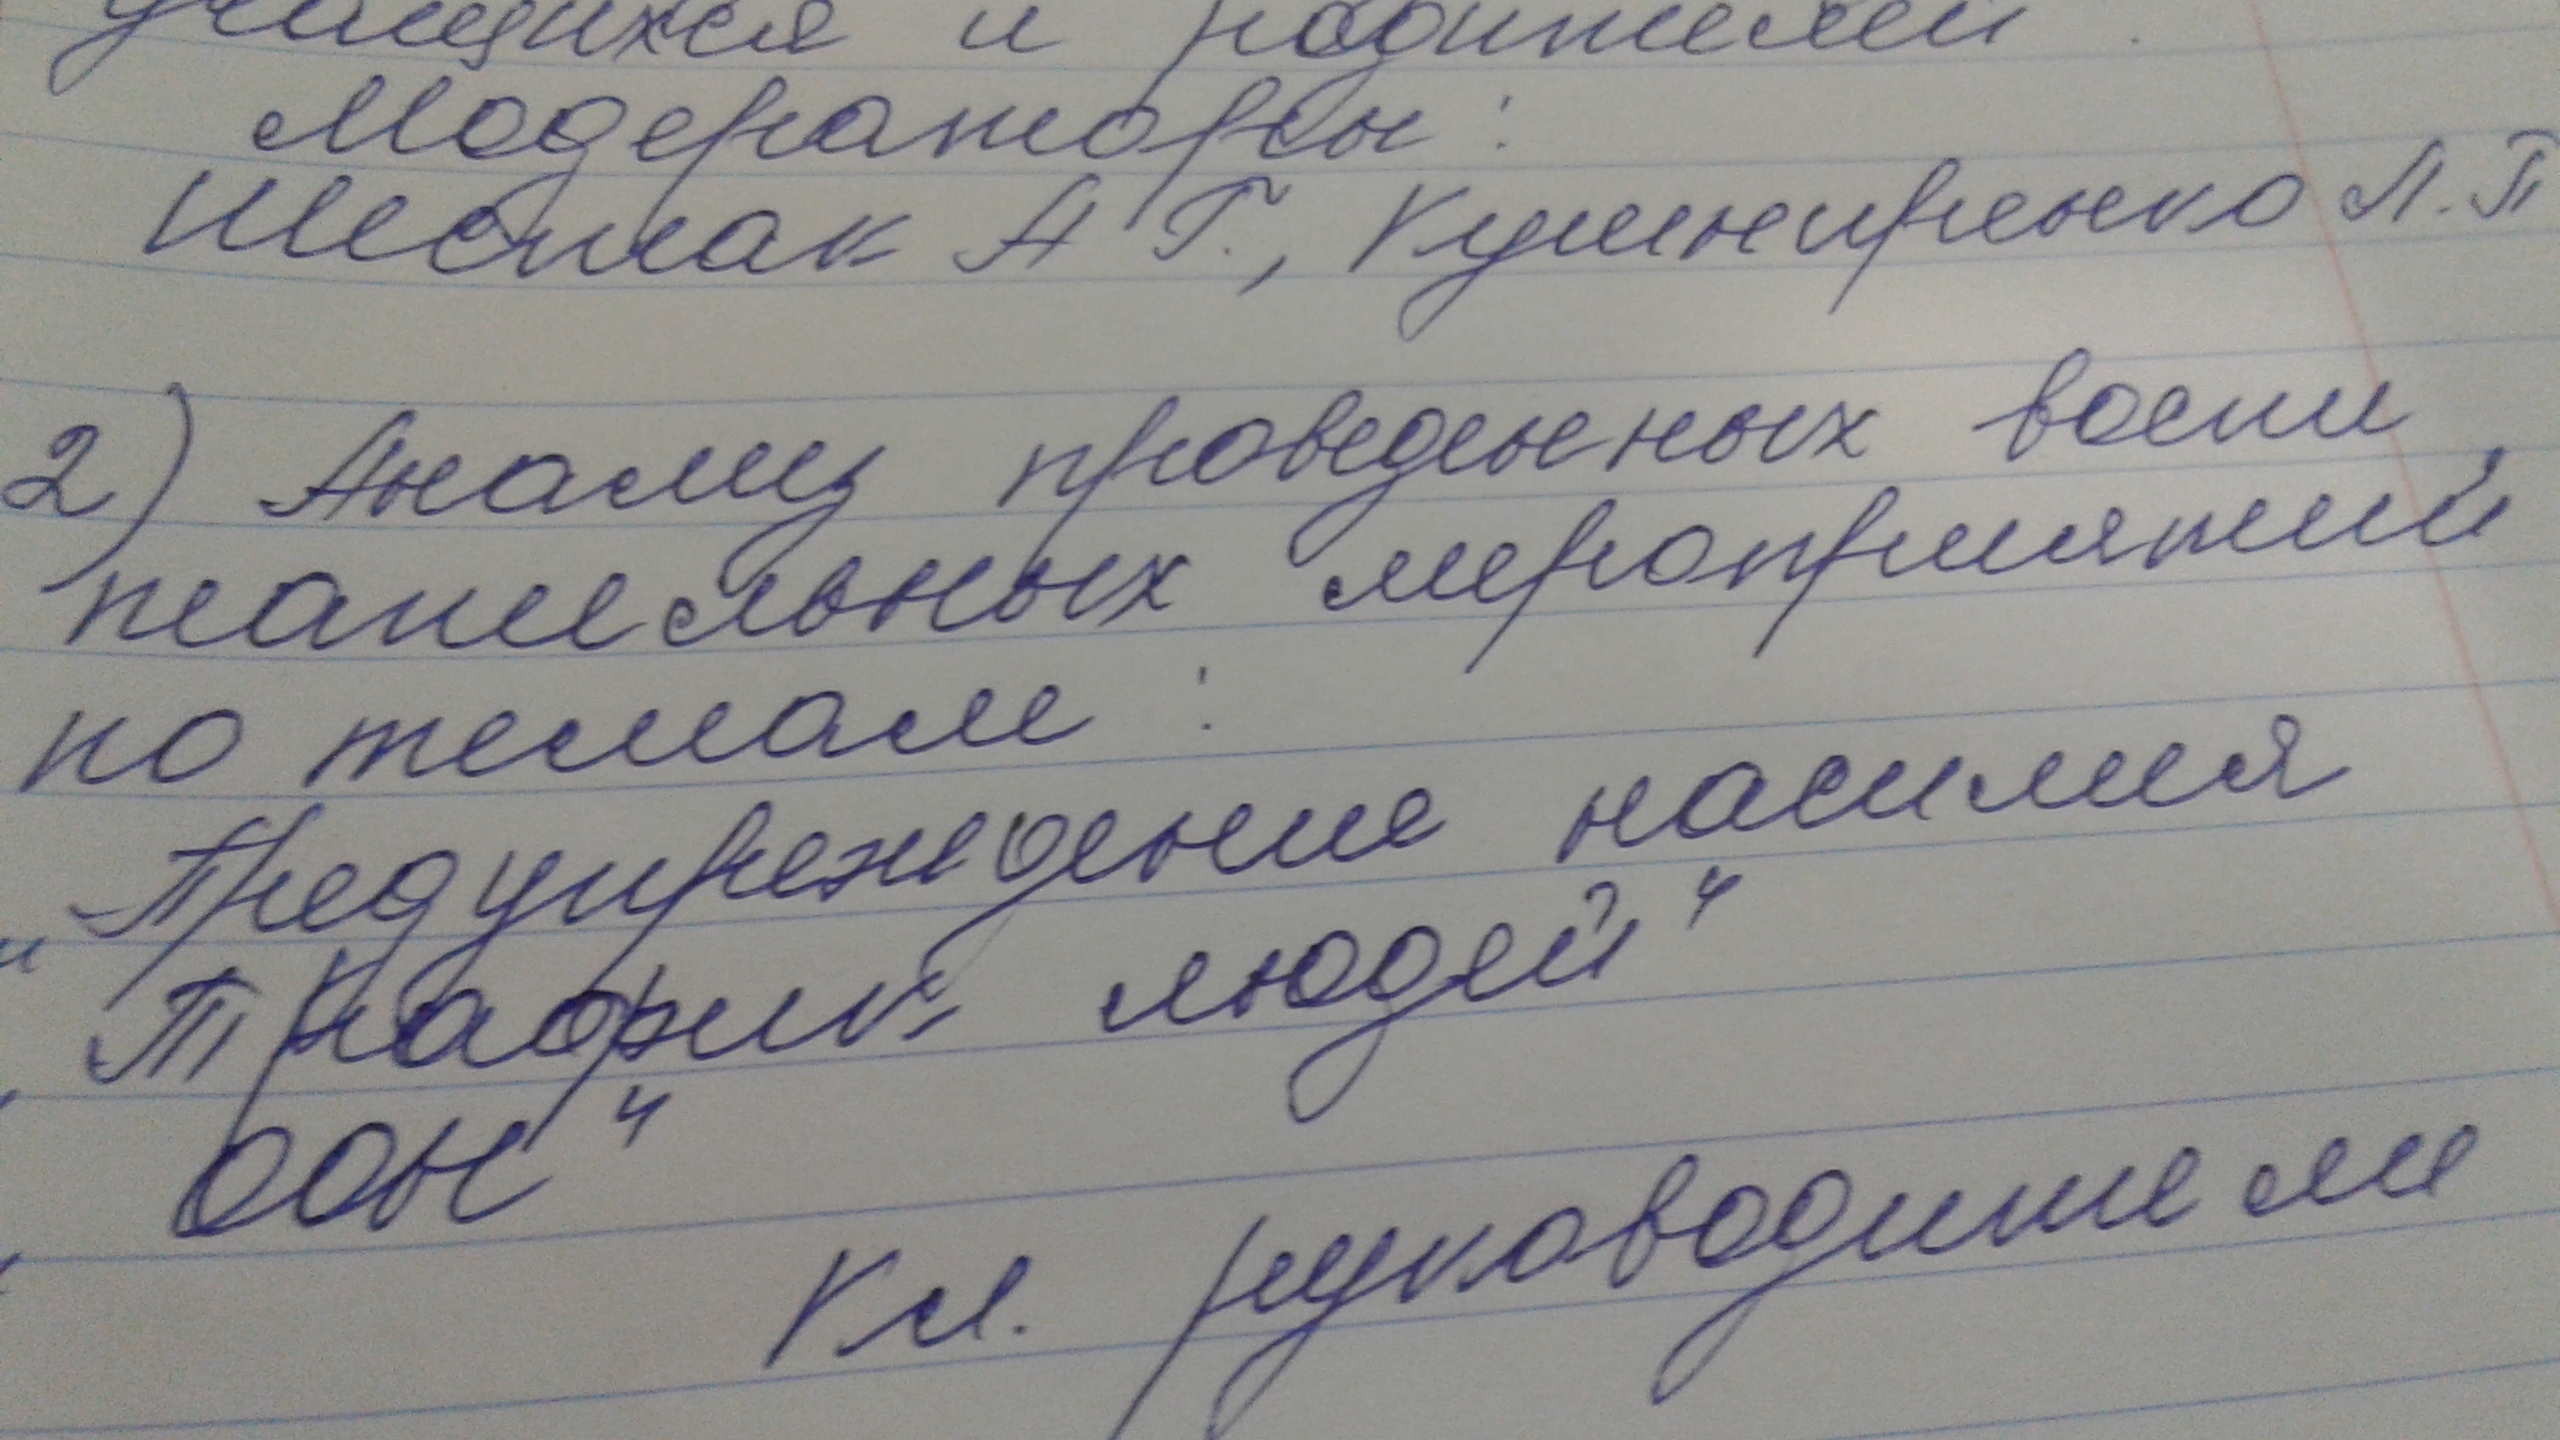 учащихся и родителей.
Модераторы:
Шестак А Г., Кушниренко Л.П
2) Анализ проведенных воспи
тательных мероприятий
по темам:
„Предупреждение насилия
„Трафик людей"
„ООН"
Кл. руководители